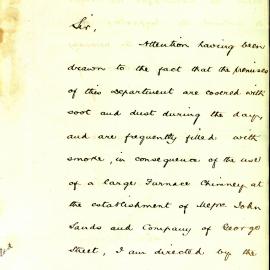 Sir,
Attention having been
drawn to the fact that the premises
of this Department are covered with
soot and dust during the day,
and are frequently filled with
smoke, in consequence of the use
of a large Furnace Chimney at
the establishment of Messrs. John
Sands and Company of George
Street, I am directed by the